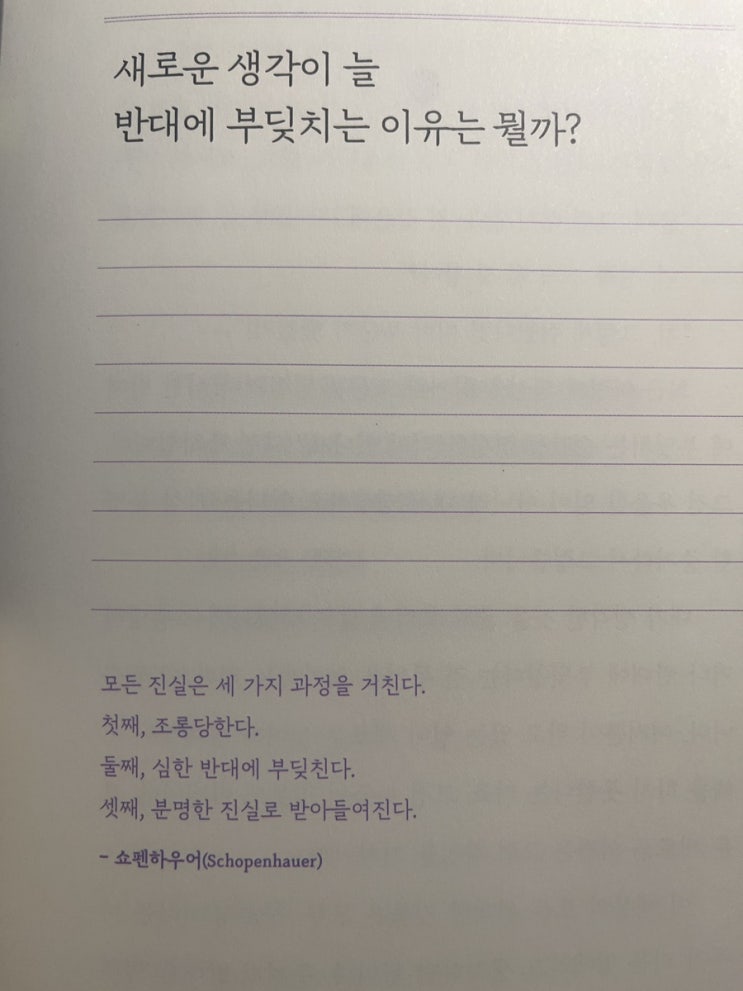 새로운 생각이 늘
반대에 부딪치는 이유는 뭘까?
모든 진실은 세 가지 과정을 거친다.
첫째, 조롱당한다.
둘째, 심한 반대에 부딪친다.
셋째, 분명한 진실로 받아들여진다.
- 쇼펜하우어(Schopenhauer)